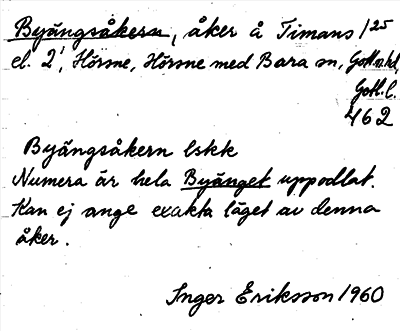 Byängsåkern, åker å Timans 1/25
el. 2¹, Hörsne, Hörsne med Bara sn, Gotl.n.hd,
Gotl. l.
462
Byängsåkern lskk
Numera är hela Byänget uppodlat.
Kan ej ange exakta läget av denna
åker.
Inger Eriksson 1960